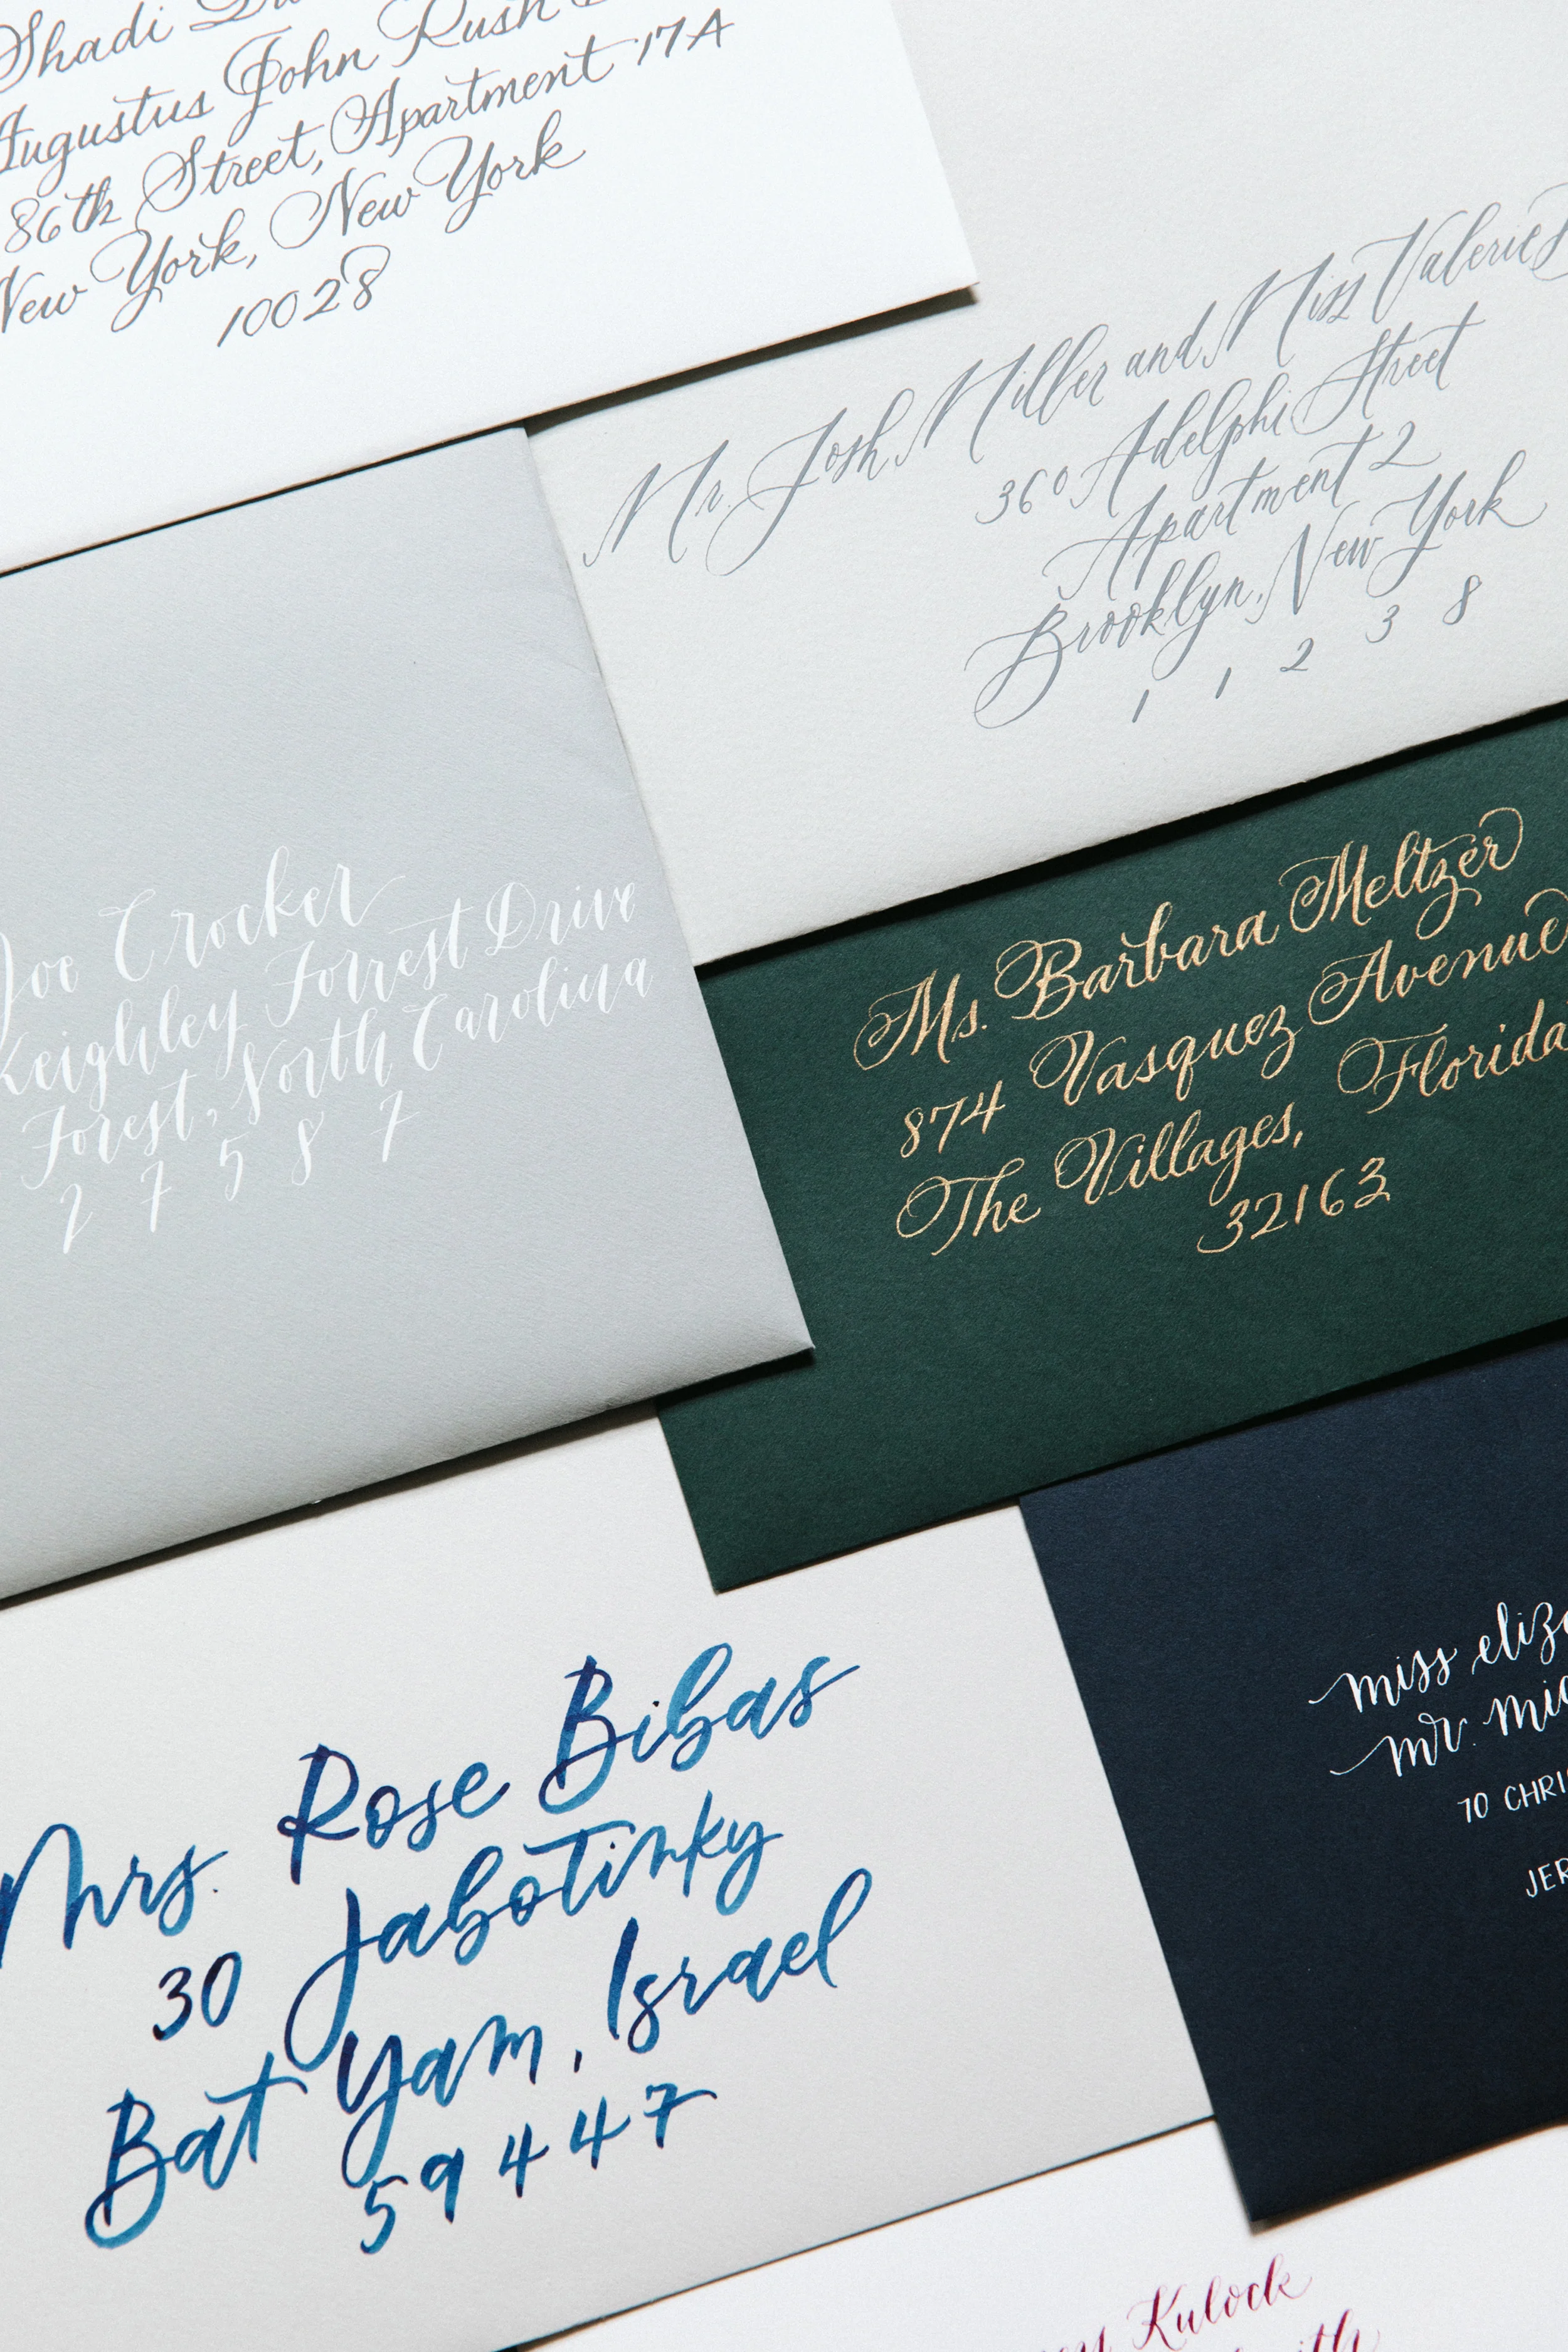 Shadi
Augustus John Rush
86th Street, Apartment 17A
New York, New York
10028
Mr. Josh Miller and Miss Valerie
360 Adelphi Street
Apartment 2
Brooklyn, New York
11238
Joe Crocker
Keighley Forrest Drive
Forest, North Carolina
27587
Ms. Barbara Meltzer
874 Vasquez Avenue
The Villages, Florida
32163
Mrs. Rose Bibas
30 Jabotinky
Bat Yam, Israel
59447
miss eliz
mr. mic
70 CHRI
JER
Kulock